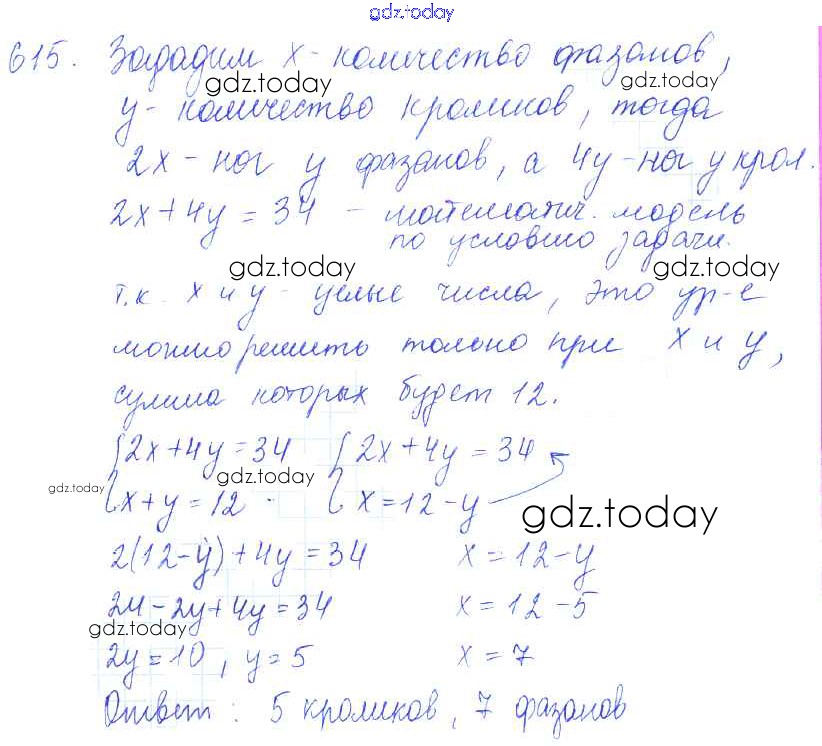 gdz.today
615. Зададим x - количество фазанов,
gdz.today gdz.today
y - количество кроликов, тогда
2x - ног у фазанов, а 4y - ног у крол.
2x + 4y = 34 - математич. модель
по условию задачи.
gdz.today gdz.today
т.к. x и y - целые числа, это ур-е
можно решить только при x и y,
сумма которых будет 12.
{2x + 4y = 34 {2x + 4y = 34
gdz.today gdz.today
x + y = 12 x = 12 - y
gdz.today
2(12 - y) + 4y = 34 x = 12 - y
24 - 2y + 4y = 34 x = 12 - 5
gdz.today
2y = 10, y = 5 x = 7
Ответ: 5 кроликов, 7 фазанов